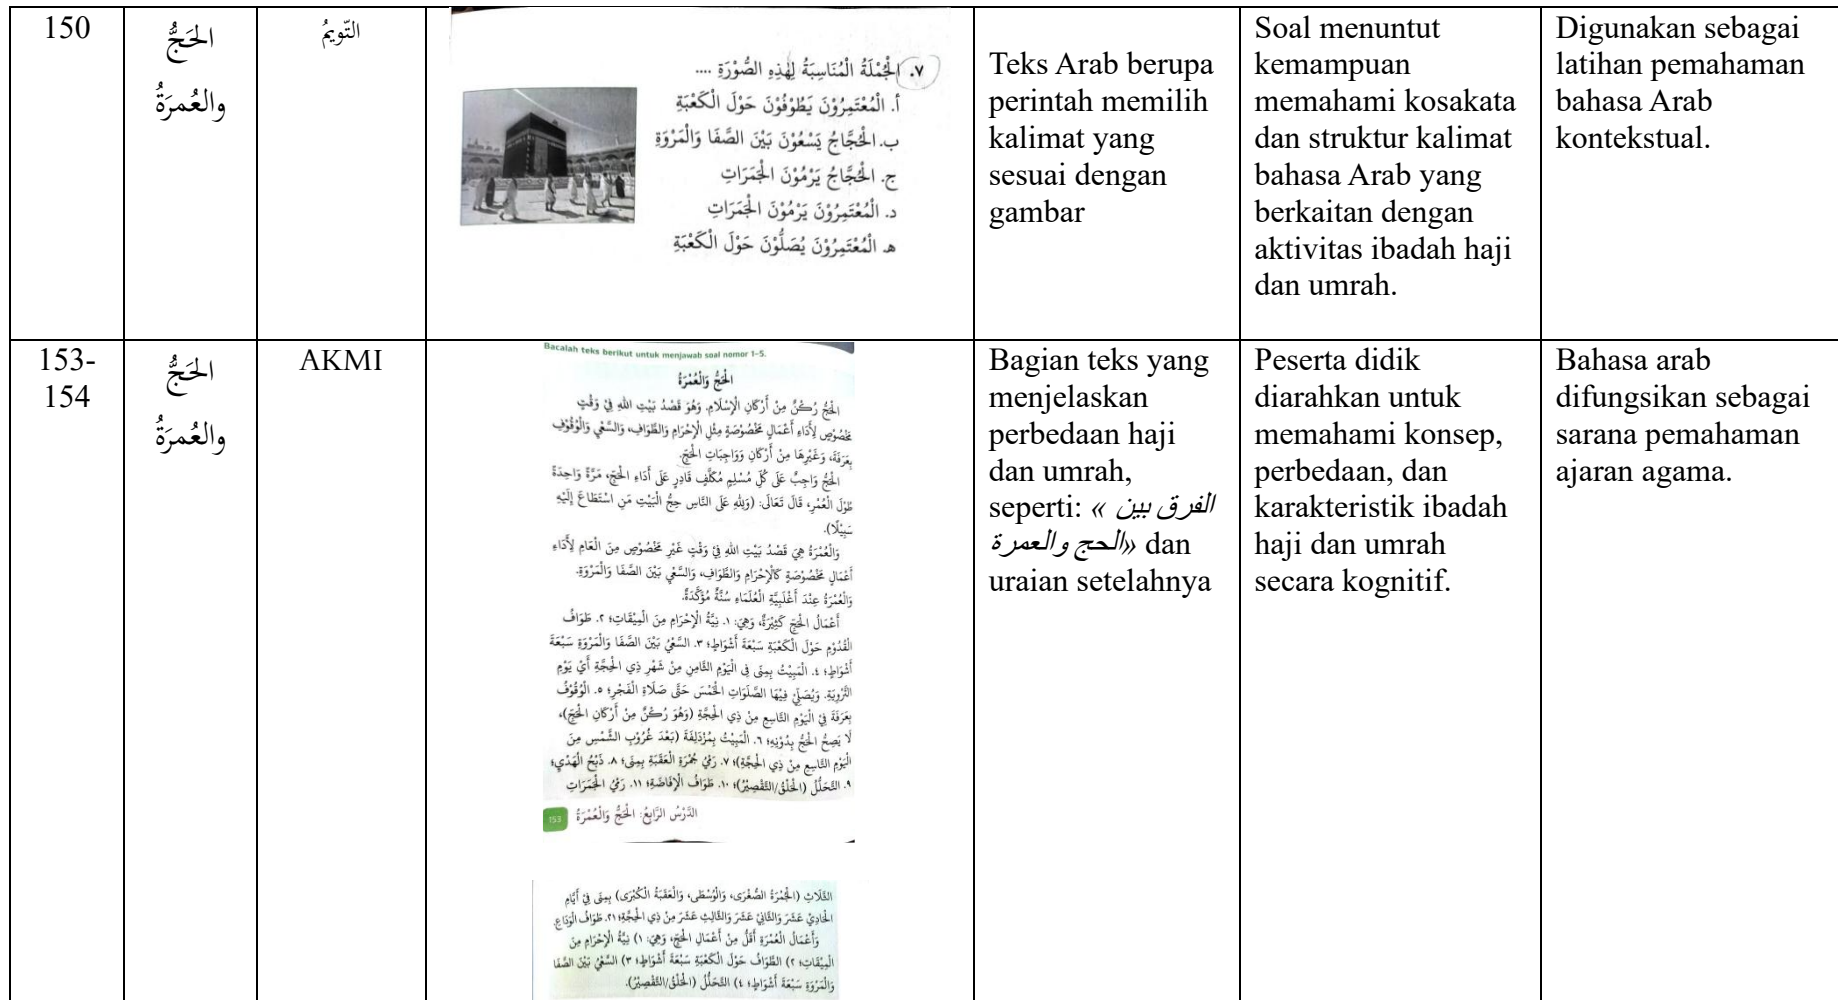 150
الحَجُّ
والعُمرَةُ
التّويمُ
٧. الْجُمْلَةُ الْمُنَاسِبَةُ لِهٰذِهِ الصُّوْرَةِ ....
أ. الْمُعْتَمِرُوْنَ يَطُوْفُوْنَ حَوْلَ الْكَعْبَةِ
ب. الْحُجَّاجُ يَسْعُوْنَ بَيْنَ الصَّفَا وَالْمَرْوَةِ
ج. الْحُجَّاجُ يَرْمُوْنَ الْجَمَرَاتِ
د. الْمُعْتَمِرُوْنَ يَرْمُوْنَ الْجَمَرَاتِ
هـ الْمُعْتَمِرُوْنَ يُصَلُّوْنَ حَوْلَ الْكَعْبَةِ
Teks Arab berupa
perintah memilih
kalimat yang
sesuai dengan
gambar
Soal menuntut
kemampuan
memahami kosakata
dan struktur kalimat
bahasa Arab yang
berkaitan dengan
aktivitas ibadah haji
dan umrah.
Digunakan sebagai
latihan pemahaman
bahasa Arab
kontekstual.
153-
154
الحَجُّ
والعُمرَةُ
AKMI
Bacalah teks berikut untuk menjawab soal nomor 1-5.
الْحَجُّ وَالْعُمْرَةُ
الْحَجُّ رُكْنٌ مِنْ أَرْكَانِ الْإِسْلَامِ. وَهُوَ قَصْدُ بَيْتِ اللهِ فِيْ وَقْتٍ
مَخْصُوْصٍ لِأَدَاءِ أَعْمَالٍ مَخْصُوْصَةٍ مِثْلِ الْإِحْرَامِ وَالطَّوَافِ، وَالسَّعْيِ وَالْوُقُوْفِ
بِعَرَفَةَ، وَغَيْرِهَا مِنْ أَرْكَانِ وَوَاجِبَاتِ الْحَجِّ.
الْحَجُّ وَاجِبٌ عَلَى كُلِّ مُسْلِمٍ مُكَلَّفٍ قَادِرٍ عَلَى أَدَاءِ الْحَجِّ، مَرَّةً وَاحِدَةً
طُوْلَ الْعُمْرِ، قَالَ تَعَالَى: (وَلِلهِ عَلَى النَّاسِ حِجُّ الْبَيْتِ مَنِ اسْتَطَاعَ إِلَيْهِ
سَبِيْلًا).
وَالْعُمْرَةُ هِيَ قَصْدُ بَيْتِ اللهِ فِيْ وَقْتٍ غَيْرِ مَخْصُوْصٍ مِنَ الْعَامِ لِأَدَاءِ
أَعْمَالٍ مَخْصُوْصَةٍ كَالْإِحْرَامِ وَالطَّوَافِ، وَالسَّعْيِ بَيْنَ الصَّفَا وَالْمَرْوَةِ.
وَالْعُمْرَةُ عِنْدَ أَغْلَبِيَّةِ الْعُلَمَاءِ سُنَّةٌ مُؤَكَّدَةٌ.
أَعْمَالُ الْحَجِّ كَثِيْرَةٌ، وَهِيَ: ١. نِيَّةُ الْإِحْرَامِ مِنَ الْمِيْقَاتِ؛ ٢. طَوَافُ
الْقُدُوْمِ حَوْلَ الْكَعْبَةِ سَبْعَةَ أَشْوَاطٍ؛ ٣. السَّعْيُ بَيْنَ الصَّفَا وَالْمَرْوَةِ سَبْعَةَ
أَشْوَاطٍ؛ ٤. الْمَبِيْتُ بِمِنَى فِي الْيَوْمِ الثَّامِنِ مِنْ شَهْرِ ذِي الْحِجَّةِ أَيْ يَوْمِ
التَّرْوِيَةِ. وَيُصَلِّيْ فِيْهَا الصَّلَوَاتِ الْخَمْسَ حَتَّى صَلَاةِ الْفَجْرِ؛ ٥. الْوُقُوْفُ
بِعَرَفَةَ فِيْ الْيَوْمِ التَّاسِعِ مِنْ ذِي الْحِجَّةِ (وَهُوَ رُكْنٌ مِنْ أَرْكَانِ الْحَجِّ)،
لَا يَصِحُّ الْحَجُّ بِدُوْنِهِ؛ ٦. الْمَبِيْتُ بِمُزْدَلِفَةَ (بَعْدَ غُرُوْبِ الشَّمْسِ مِنَ
الْيَوْمِ التَّاسِعِ مِنْ ذِي الْحِجَّةِ)؛ ٧. رَمْيُ جَمْرَةِ الْعَقَبَةِ بِمِنَى؛ ٨. ذَبْحُ الْهَدْيِ؛
٩. التَّحَلُّلُ (الْحَلْقُ/التَّقْصِيْرُ)؛ ١٠. طَوَافُ الْإِفَاضَةِ؛ ١١. رَمْيُ الْجَمَرَاتِ
الدَّرْسُ الرَّابِعُ: الْحَجُّ وَالْعُمْرَةُ 153
الثَّلَاثِ (الْجَمْرَةُ الصُّغْرَى، وَالْوُسْطَى، وَالْعَقَبَةُ الْكُبْرَى) بِمِنَى فِيْ أَيَّامِ
الْحَادِيْ عَشَرَ وَالثَّانِيْ عَشَرَ وَالثَّالِثِ عَشَرَ مِنْ ذِي الْحِجَّةِ؛ ٢١. طَوَافُ الْوَدَاعِ.
وَأَعْمَالُ الْعُمْرَةِ أَقَلُّ مِنْ أَعْمَالِ الْحَجِّ، وَهِيَ: ١) نِيَّةُ الْإِحْرَامِ مِنَ
الْمِيْقَاتِ؛ ٢) الطَّوَافُ حَوْلَ الْكَعْبَةِ سَبْعَةَ أَشْوَاطٍ؛ ٣) السَّعْيُ بَيْنَ الصَّفَا
وَالْمَرْوَةِ سَبْعَةَ أَشْوَاطٍ؛ ٤) التَّحَلُّلُ (الْحَلْقُ/التَّقْصِيْرُ).
Bagian teks yang
menjelaskan
perbedaan haji
dan umrah,
seperti: « الفرق بين
الحج والعمرة» dan
uraian setelahnya
Peserta didik
diarahkan untuk
memahami konsep,
perbedaan, dan
karakteristik ibadah
haji dan umrah
secara kognitif.
Bahasa arab
difungsikan sebagai
sarana pemahaman
ajaran agama.